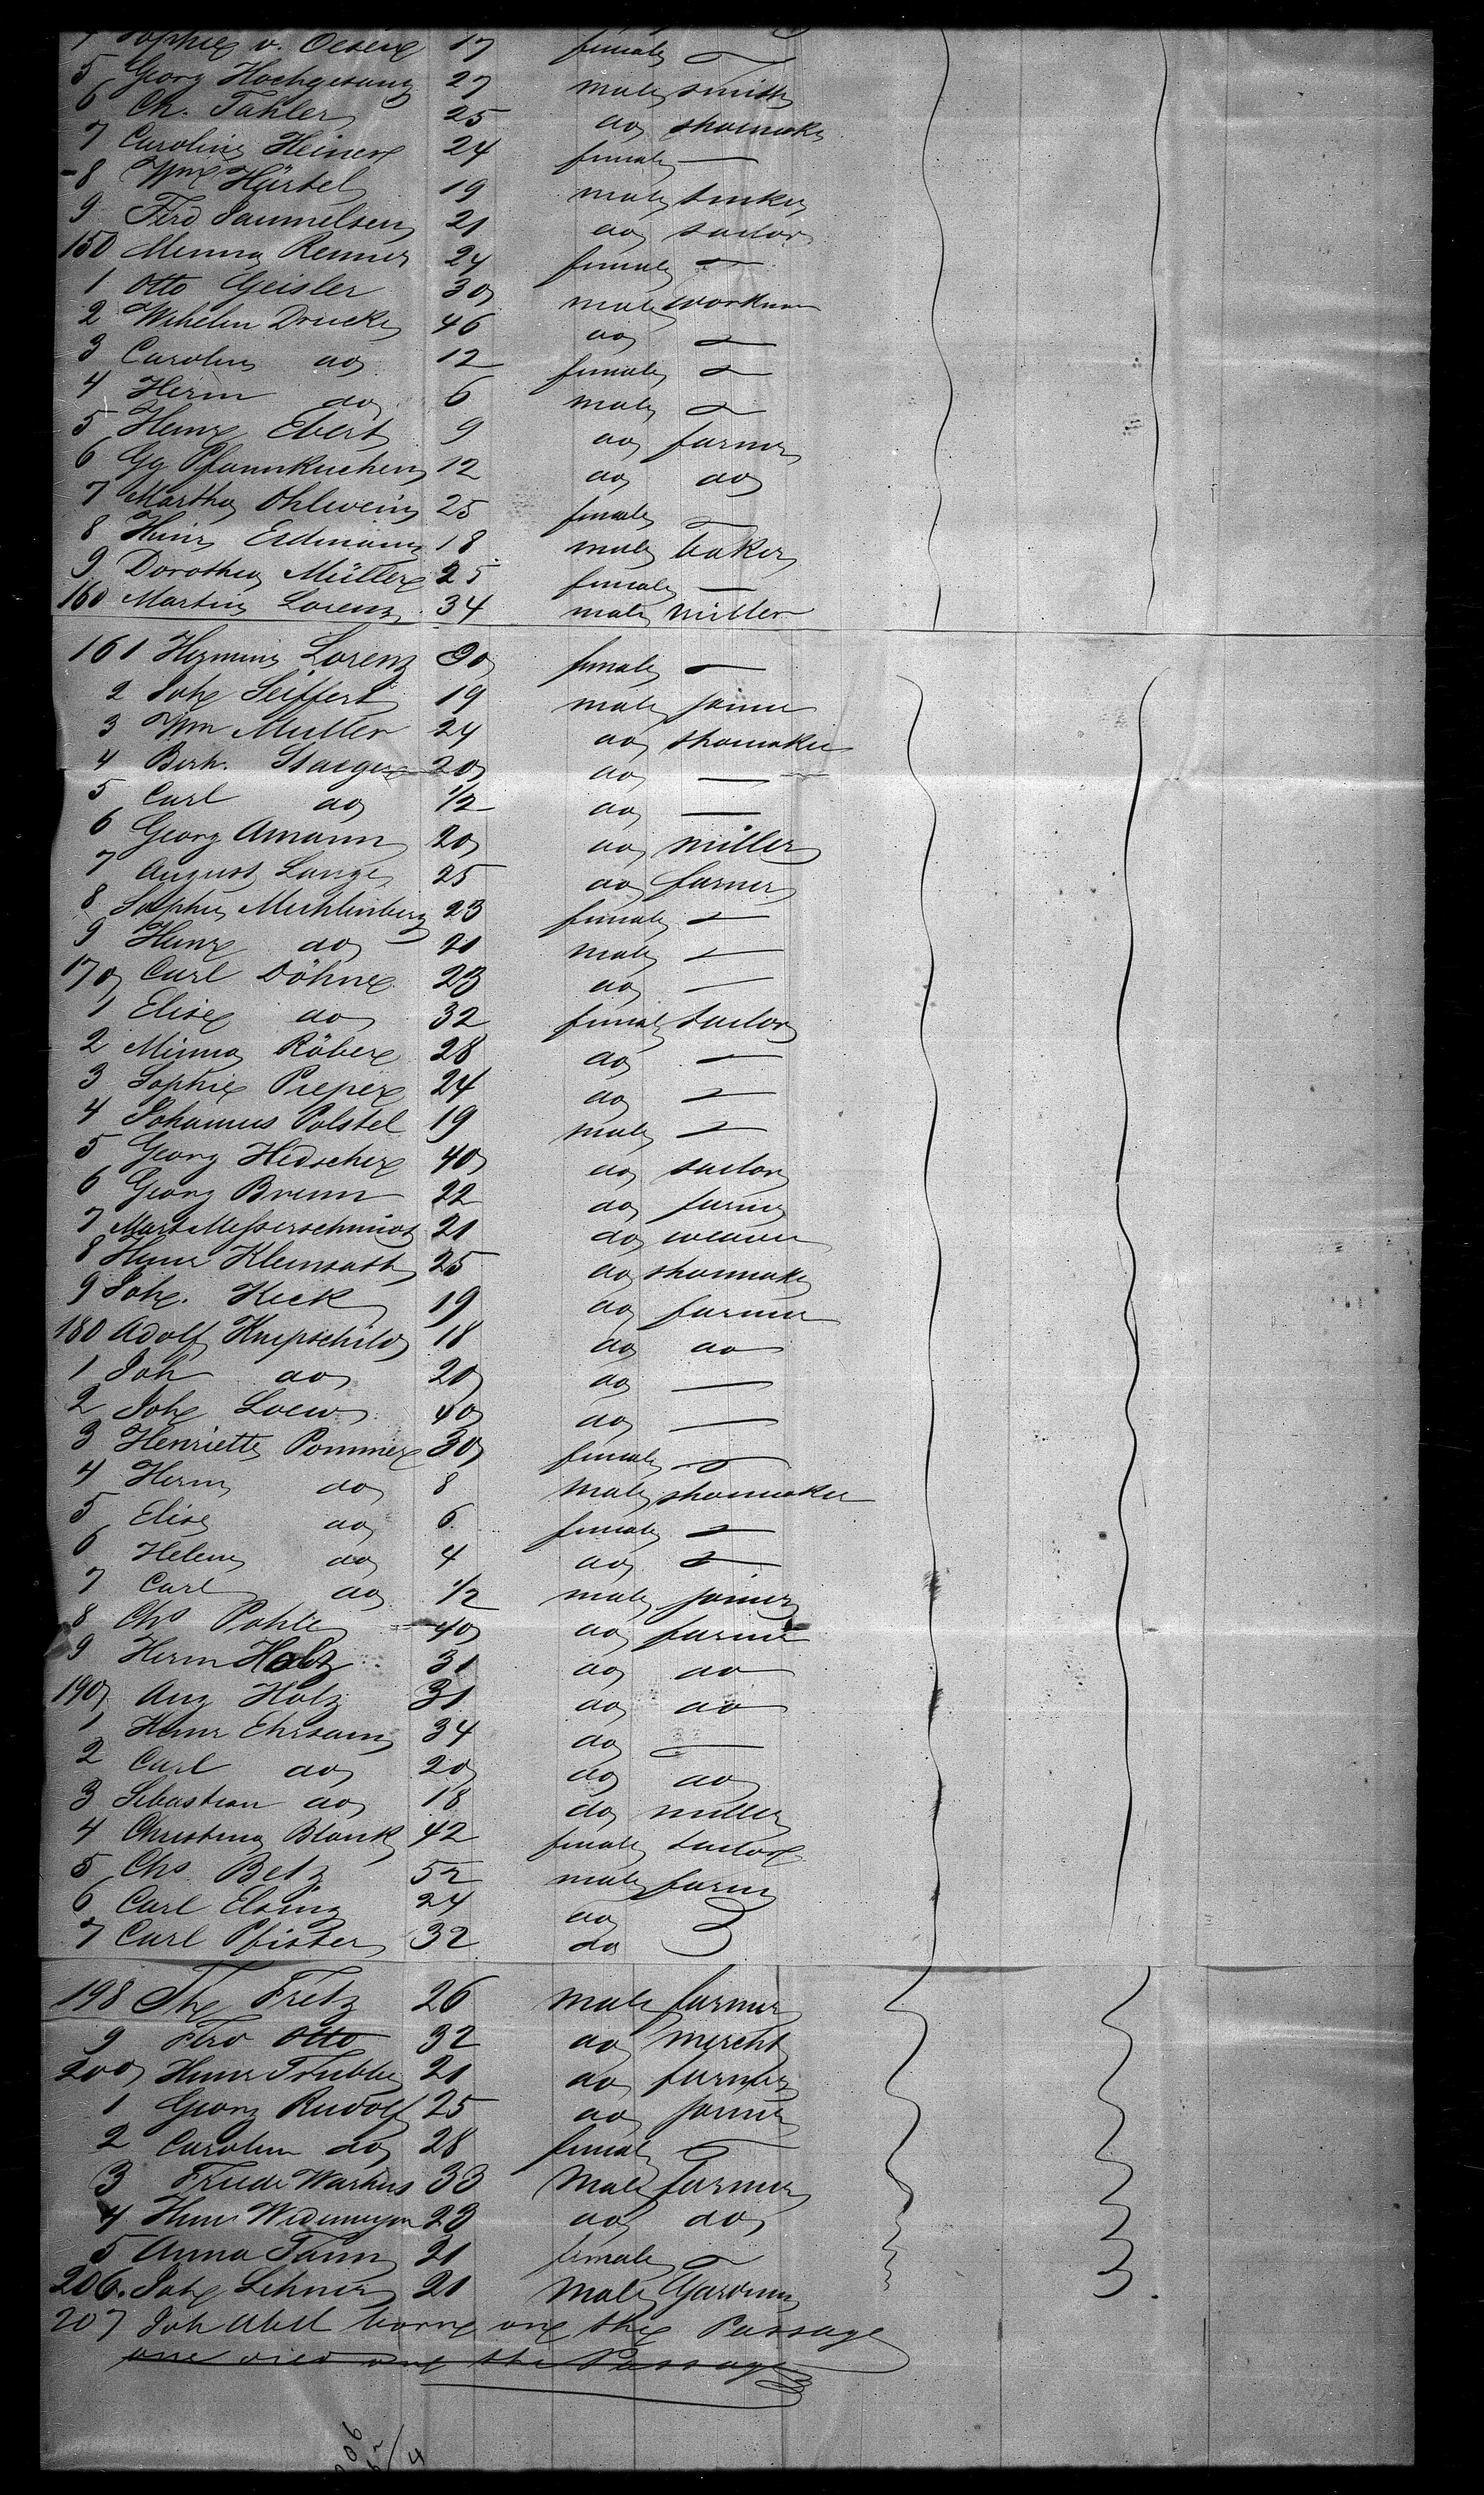 Sophie v. Oesen 17 female —
5 Georg Hochgesang 27 male smith
6 Ch. Tahler 25 do shoemaker
7 Caroline Heinen 24 female —
8 Wm Härtel 19 male
9 Ferd Sammelsen 21 do tailor
150 Minna Renner 24 female —
1 Otto Geisler 30 male workman
2 Wihelm Drucke 46 do —
3 Carolin do 12 female —
4 Herm do 6 male —
5 Heinr Ebert 9 do farmer
6 Gg Pfannkuchen 12 do do
7 Martha Ohlwein 25 female —
8 Heinr Erdmann 18 male baker
9 Dorothea Müller 25 female —
160 Martin Lorenz 34 male miller
161 Hermine Lorenz 30 female —
2 Joh Seiffert 19 male joiner
3 Wm Muller 24 do shomaker
4 Berh. Staeger 20 do —
5 Carl do 1/2 do —
6 Georg Amann 20 do miller
7 August Lange 25 do farmer
8 Sophie Mechlenberg 23 female —
9 Heinr do 21 male —
170 Carl Döhne 23 do —
1 Elise do 32 female tailor
2 Minna Röber 28 do —
3 Sophie Pieper 24 do —
4 Johannes Polstel 19 male —
5 Georg Hidscher 40 do tailor
6 Georg Brunn 22 do farmer
7 Mart Messerschmidt 21 do weaver
8 Heinr Kleinsath 25 do shomaker
9 Joh. Keck 19 do farmer
180 Adolf Knipschild 18 do do
1 Joh do 20 do —
2 Joh Loew 40 do —
3 Henriette Pommer 30 female —
4 Herm do 8 male shomaker
5 Elise do 6 female —
6 Helene do 4 do —
7 Carl do 1/2 male joiner
8 Chs Pohle 40 do farmer
9 Herm Holz 31 do do
190 Aug Holz 31 do do
1 Heinr Ehrsam 34 do —
2 Carl do 20 do do
3 Sebastian do 18 do miller
4 Christina Blank 42 female tailor
5 Chs Betz 52 male farmer
6 Carl Elsing 24 do
7 Carl Pfister 32 do
198 Fretz 26 male farmer
9 Ferd Otto 32 do mercht
200 Heinr Trubbe 21 do farmer
1 Georg Rudolf 25 do joiner
2 Carolin do 28 female —
3 Friedr Warkus 33 male farmer
4 Heinr Widemeyer 23 do do
5 Anna Tann 21 female —
206. Joh Lehner 21 male Gardener
207 Joh Abel borne one the Passage
one died one the Passage